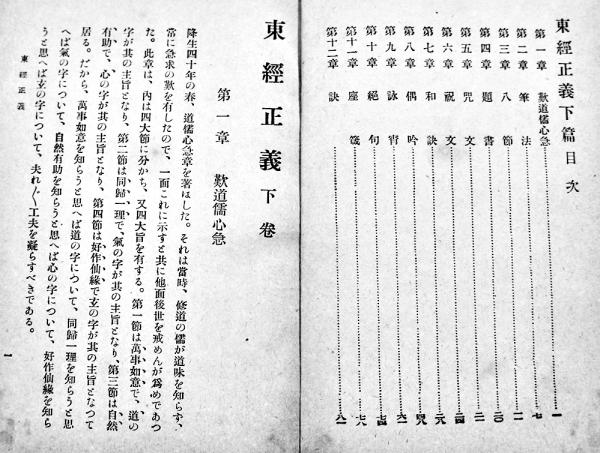 東經正義下篇目次
第一章 歎道儒心急 一
第二章 筆法 七
第三章 八節 一一
第四章 題書 二〇
第五章 咒文 二二
第六章 祝文 二四
第七章 和訣 二九
第八章 偶吟
第九章 訣
第十章 絕句 七四
第十一章 座箴 七八
第十二章 訣 八一
東經正義 下卷
第一章 歎道儒心急
降生四十年の春、道儒心急章を著はした。それは當時、修道の儒が道味を知らず、
常に急求の歎を有したので、一面これに示すと共に他面後世を戒めんが爲めであつ
た。此章は、內は四大節に分かち、又四大旨を有する。第一節は萬事如意で、道の
字が其の主旨となり、第二節は同歸一理で、氣の字が其の主旨となり、第三節は自然
有助で、心の字が其の主旨となり、第四節は好作仙緣で玄の字が其の主旨となつて
居る。だから、萬事如意を知らうと思へば道の字について、同歸一理を知らうと思
へば氣の字について、自然有助を知らうと思へば心の字について、好作仙緣を知ら
うと思へば玄の字について、夫れ〴〵工夫を凝らすべきである。
東經正義
一